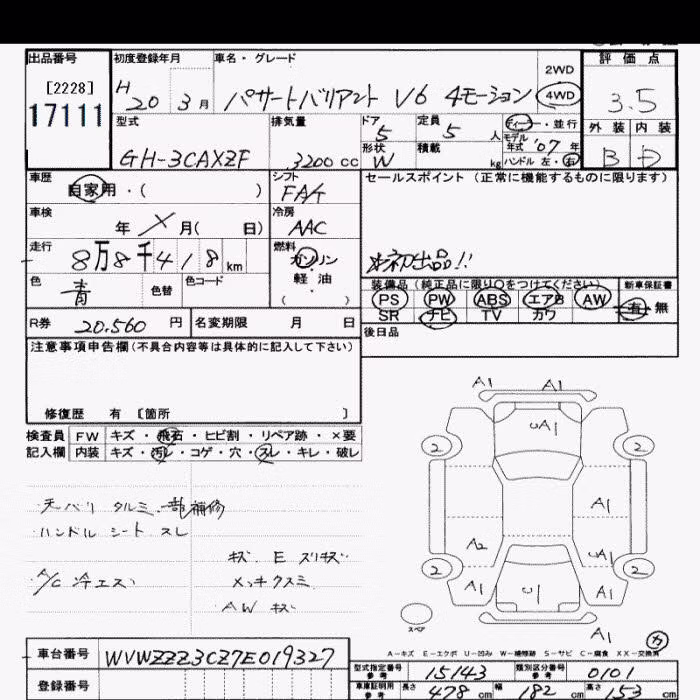 出品番号 初度登録年月 車名・グレード 評価点
[2228] H 20 3月 パサートバリアント V6 4モーション 2WD 4WD 3.5
17111
型式 排気量 ドア 定員 ディーラー・並行 外装 内装
GH-3CAXZF 3200 cc 5 5人 モデル年式 '07年 B D
形状 W 積載 kg ハンドル 左・右
車歴 シフト セールスポイント (正常に機能するものに限ります)
自家用・( ) FAT
車検 冷房
年 × 月( 日) AAC
走行 燃料
8万8千418km ガソリン
色 色替 色コード 軽油
青 ( ) *初出品!!
装備品 (純正品に限り○をつけてください) 新車保証書
PS PW ABS エアB AW 有 無
SR ナビ TV カワ
R券 20,560 円 名変期限 月 日 後日品
注意事項申告欄(不具合内容等は具体的に記入して下さい)
修復歴 有 [箇所 ]
検査員 FW キズ・飛石・ヒビ割・リペア跡・×要
記入欄 内装 キズ・汚レ・コゲ・穴・スレ・キレ・破レ
天バリ タルミ 一部補修
ハンドル シート スレ
キズ E スリキズ
A/C 冷エズ メッキクスミ
AW キズ
A1 A1
UA1
2 2
A1
A2 UA1
2 2
A1 U1 A1
スペア A1
カ
A-キズ E-エクボ U-凹み W-補修跡 S-サビ C-腐食 XX-交換済
車台番号 WVWZZZ3CZ7E019327
登録番号
型式指定番号 参考 15143 類別区分番号 参考 0101
車庫証明用 参考 長さ 478 cm 幅 182 cm 高さ 153 cm